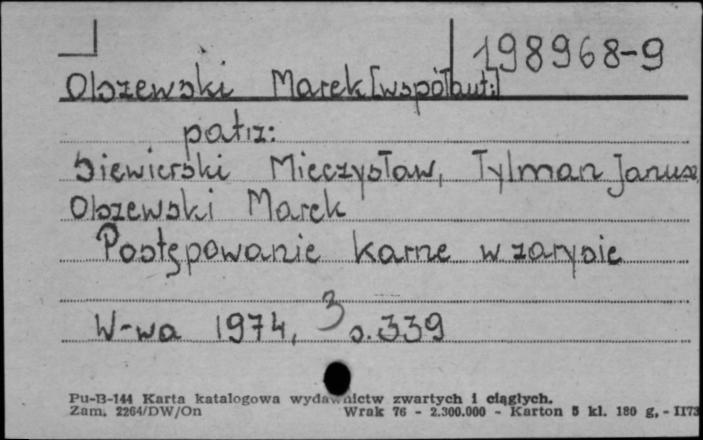 198968-9
Olszewski Marek [współaut.]
patrz:
Siewierski Mieczysław, Tylman Janusz
Olszewski Marek
Postępowanie karne w zarysie
3
W-wa 1974, s. 339
Pu-B-144 Karta katalogowa wydawnictw zwartych i ciągłych.
Zam. 2264/DW/On Wrak 76 - 2.300.000 - Karton 5 kl. 180 g. - II73